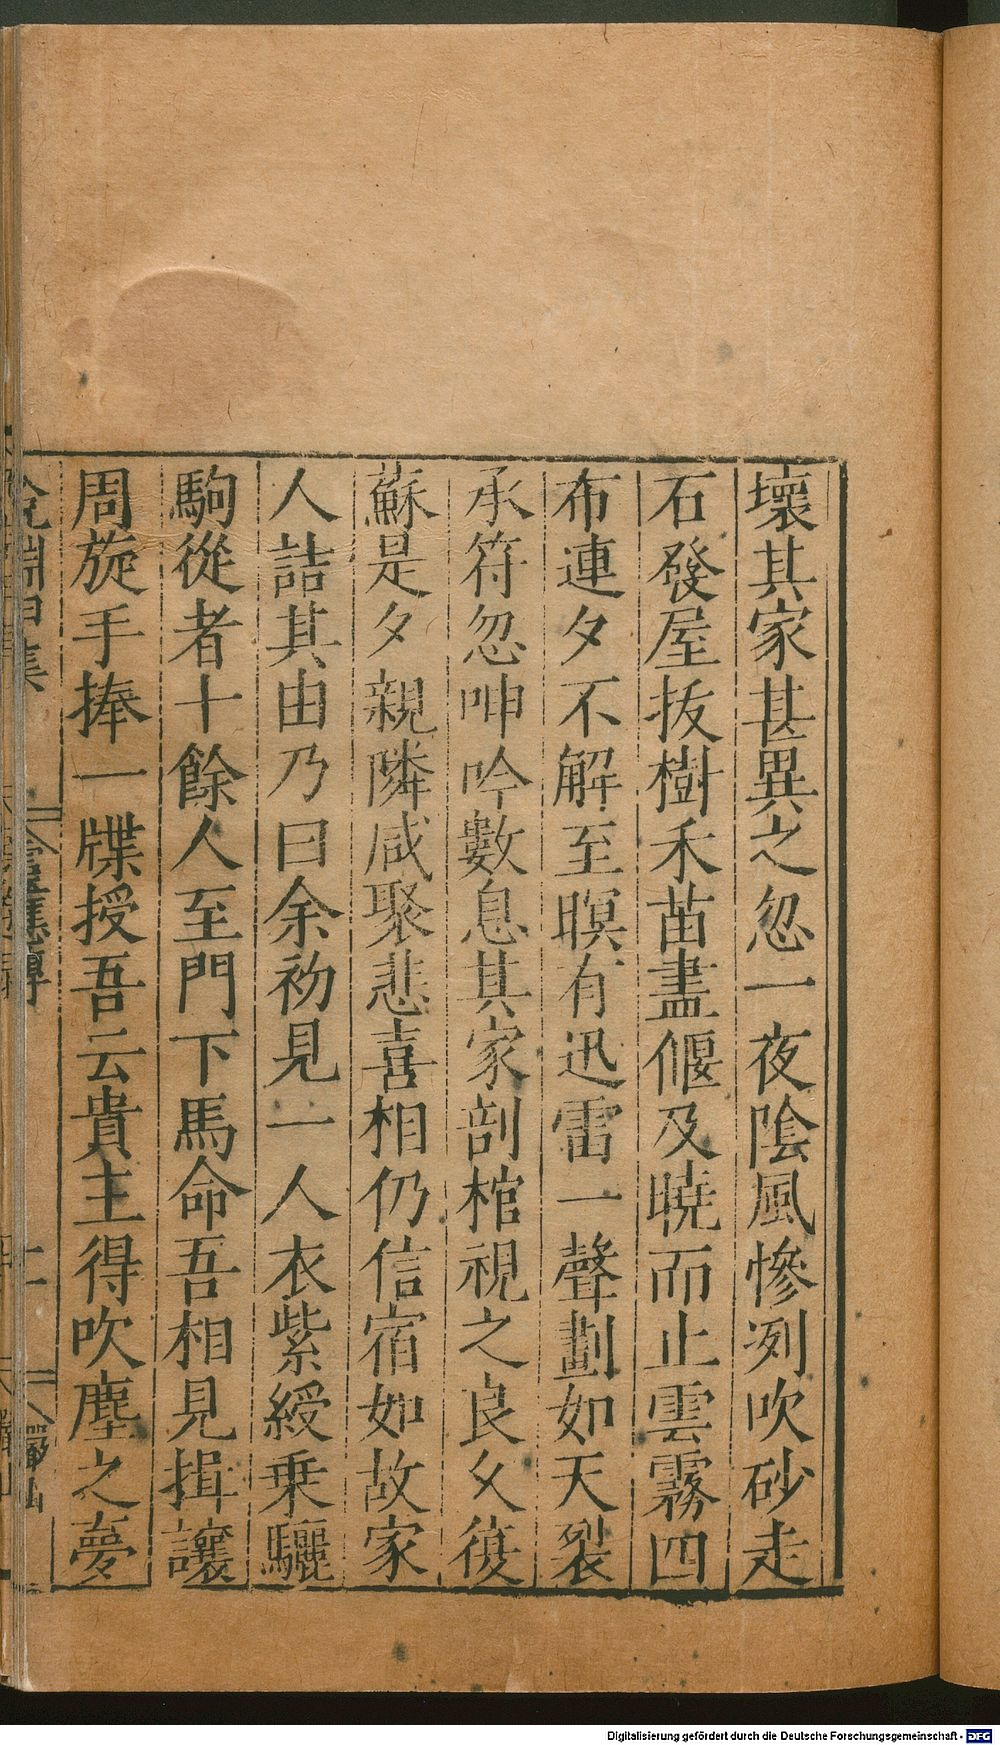 壞其家甚異之忽一夜陰風慘冽吹砂走
石發屋拔樹禾苗盡偃及曉而止雲霧四
布連夕不解至暝有迅雷一聲劃如天裂
承符忽呻吟數息其家剖棺視之良久復
蘇是夕親隣咸聚悲喜相仍信宿如故家
人詰其由乃曰余初見一人衣紫綬乗驪
駒從者十餘人至門下馬命吾相見揖讓
周旋手捧一牒授吾云貴主得吹塵之夢
說淵丁集
靈應傳
十一
儼山
Digitalisierung gefördert durch die Deutsche Forschungsgemeinschaft - DFG